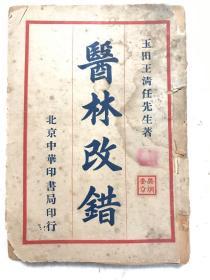 玉田王清任先生著
醫林改錯
北京中華印書局印行